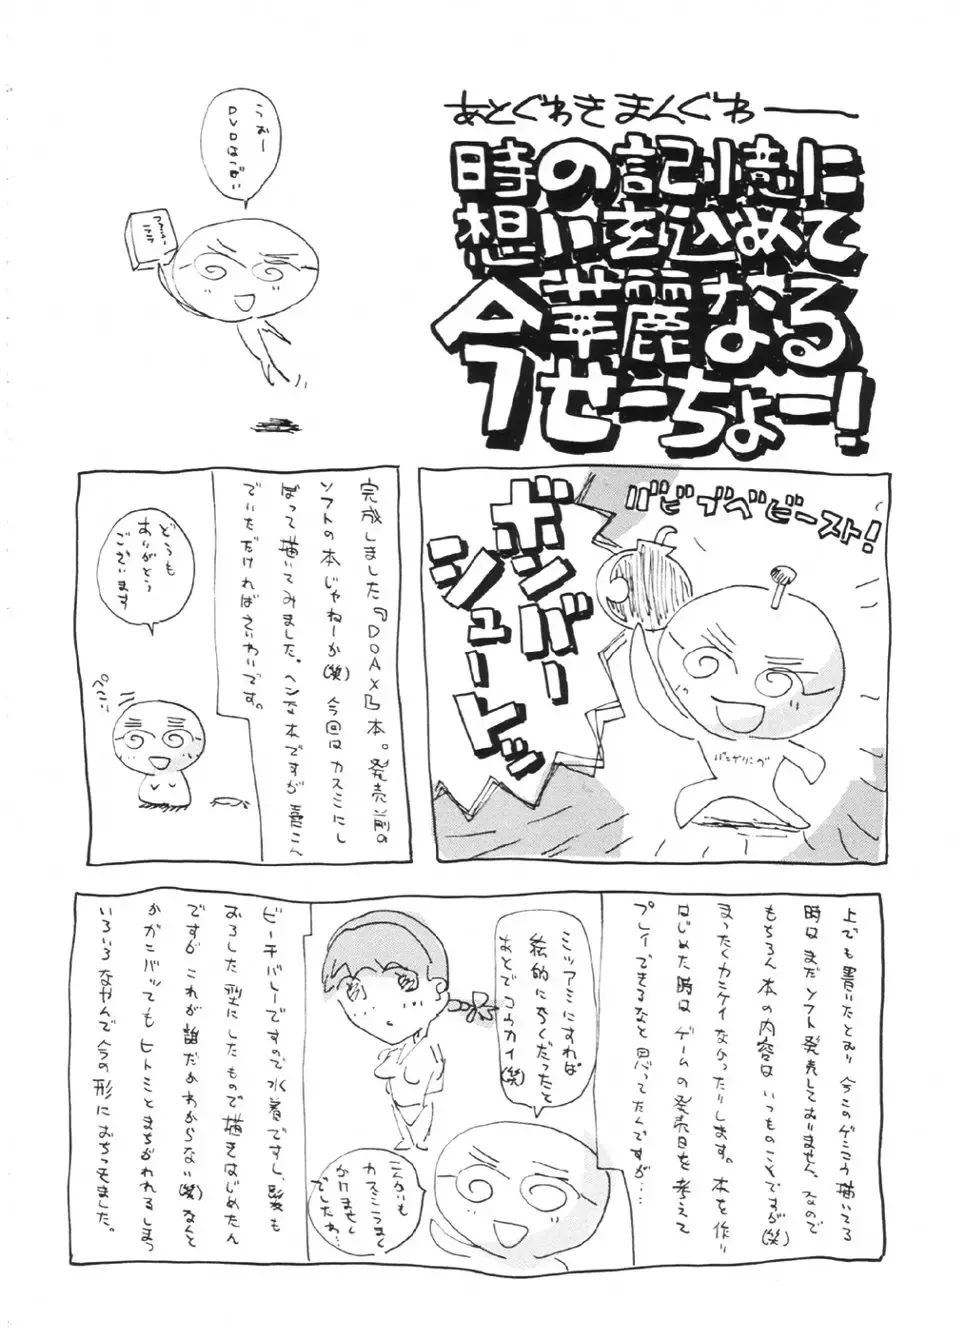 あとぐわき まんぐわ
時の記憶に
想いを込めて
今 華麗なる
ぜーちょー!
うおー
DVDはづい
バビブベビースト!
ボンバー
シュートッ
完成しました『DOAX』本。発売前の
ソフトの本じゃねーか(笑) 今回はカスミにし
ぼって描いてみました。ヘンな本ですが喜こん
でいただければさいわいです。
どうも
ありがとう
ございます
ぺこっ
上でも書いたとおり今このゲンコウ描いてる
時はまだソフト発売しておりません。なので
もちろん本の内容はいつものことですが(笑)
まったくカンケイなかったりします。本を作り
はじめた時はゲームの発売日を考えて
プレイできるなと思ってたんですが…
ミツアミにすれば
絵的にらくだったと
あとでコウカイ(笑)
こんかいも
カスミうまく
かけません
でしたね…
ビーチバレーですので水着ですし、髪も
おろした型にしたもので描きはじめたん
ですが これが誰だかわからない(笑)なんと
かガンバってもヒトミとまちがわれるしまつ
いろいろなやんで今の形におちつきました。